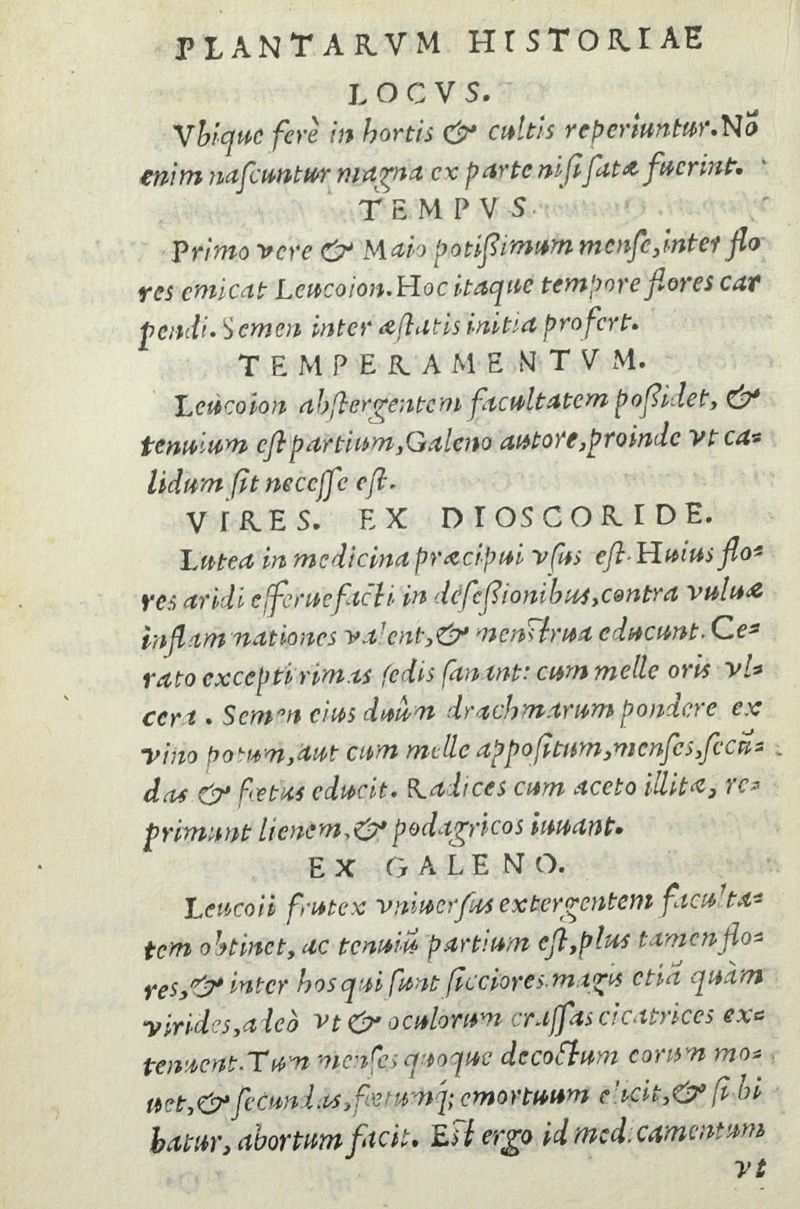 PLANTARVM HISTORIAE
LOCVS.
Vbique ferè in hortis & cultis reperiuntur. Nō
enim naſcuntur magna ex parte niſi ſatæ fuerint.
TEMPVS
Primo vere & Maio potißimum menſe, inter flo
res emicat Leucoion. Hoc itaque tempore flores car
pendi. Semen inter æſtatis initia profert.
TEMPERAMENTVM.
Leucoion abſtergentem facultatem poßidet, &
tenuium eſt partium, Galeno autore, proinde vt ca⸗
lidum ſit neceſſe eſt.
VIRES. EX DIOSCORIDE.
Lutea in medicina præcipui vſus eſt. Huius flo⸗
res aridi efferuefacti in deſeßionibus, contra vuluæ
inflammationes valent, & menſtrua educunt. Ce⸗
rato excepti rimas ſedis ſanant: cum melle oris vl⸗
cera. Semen eius duûm drachmarum pondere ex
vino potum, aut cum melle appoſitum, menſes, ſecū⸗
das & fœtus educit. Radices cum aceto illitæ, re⸗
primunt lienem, & podagricos iuuant.
EX GALENO.
Leucoii frutex vniuerſus extergentem faculta⸗
tem obtinet, ac tenuiū partium eſt, plus tamen flo⸗
res, & inter hos qui ſunt ſicciores magis etiā quàm
virides, adeò vt & oculorum craſſas cicatrices ex⸗
tenuent. Tum menſes quoque decoctum eorum mo⸗
uet, & ſecundas, fœtumq́; emortuum elicit, & ſi bi
batur, abortum facit. Eſt ergo id medicamentum
vt